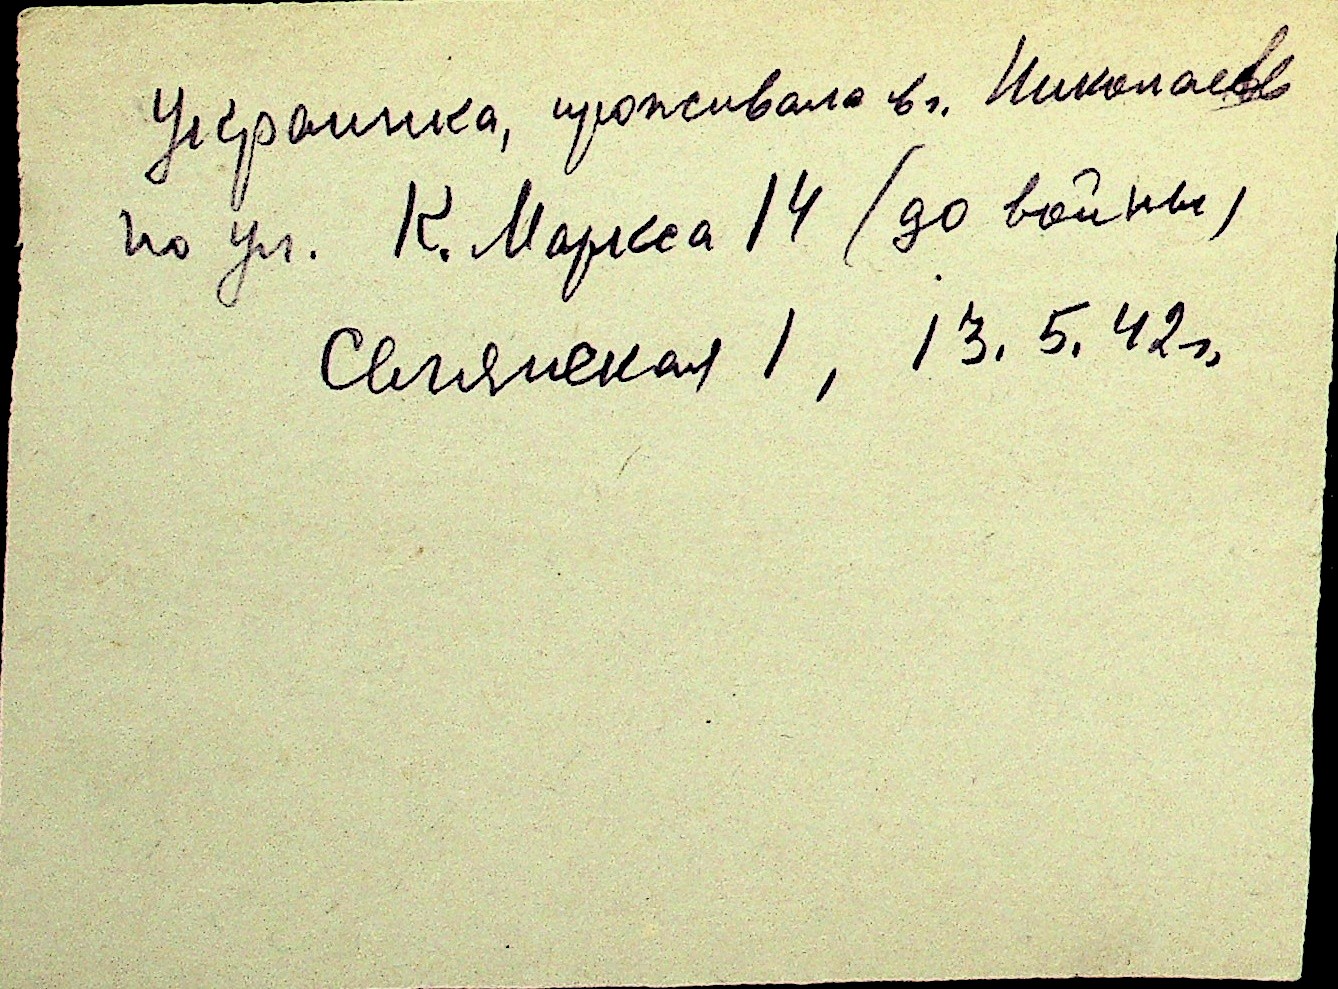 Украинка, проживала в г. Николаев
по ул. К. Маркса 14 (до войны)
1, 13.5.42 г.